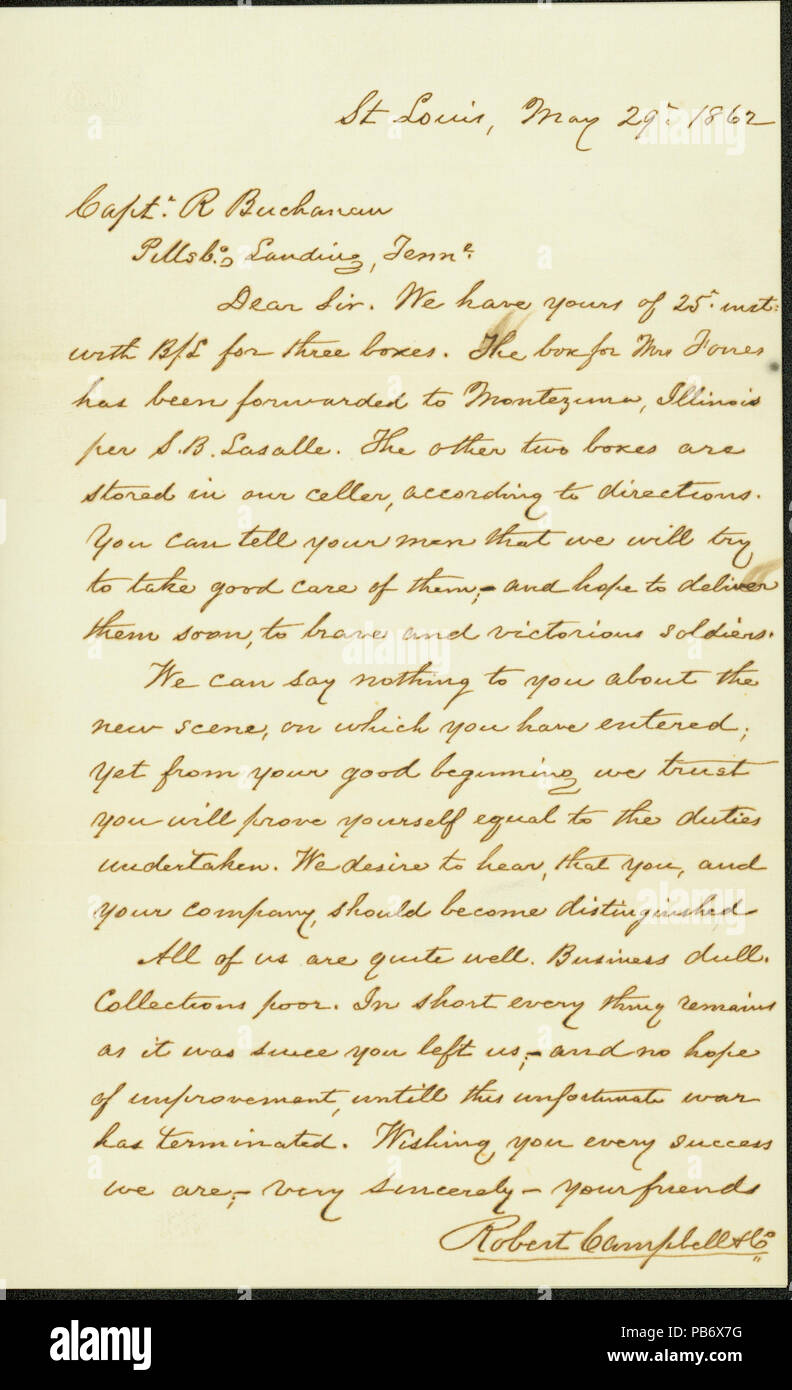 St Louis, May 29. 1862
Capt. R Buchanan
Pittsbg. Landing, Tenne.
Dear Sir. We have yours of 25. inst.
with B/L for three boxes. The box for Mrs
has been forwarded to Montezuma, Illinois
per S.B. Lasalle. The other two boxes are
stored in our celler, according to directions.
You can tell your men that we will try
to take good care of them; - and hope to deliver
them soon, to brave and victorious soldiers.
We can say nothing to you about the
new scene, on which you have entered;
yet from your good beginning we trust
you will prove yourself equal to the duties
undertaken. We desire to hear, that you, and
your company, should become distinguished
All of us are quite well. Business dull.
Collections poor. In short every thing remains
as it was since you left us; - and no hope
of improvement, untill this unfortunate war
has terminated. Wishing you every success
we are, - very sincerely - your friends
Robert Campbell & Co
alamy
alamy
Image ID: PB6X7G
www.alamy.com